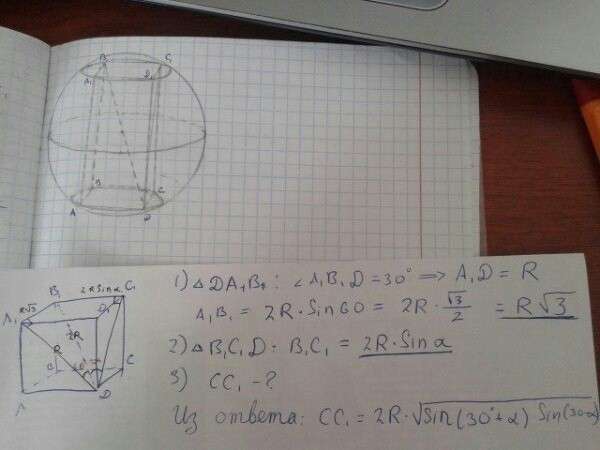 B₁ C₁
A₁ D₁
B C
A D
2R sin α C₁
B₁
R√3
A₁ D₁
2R
R
B 60° C
A D
1) △DA₁B₁: ∠A₁B₁D = 30° ⟹ A₁D = R
A₁B₁ = 2R · Sin 60 = 2R · √3/2 = R√3
2) △B₁C₁D: B₁C₁ = 2R · Sin α
3) CC₁ - ?
Из ответа: CC₁ = 2R · √Sin(30°+α) Sin(30-α)